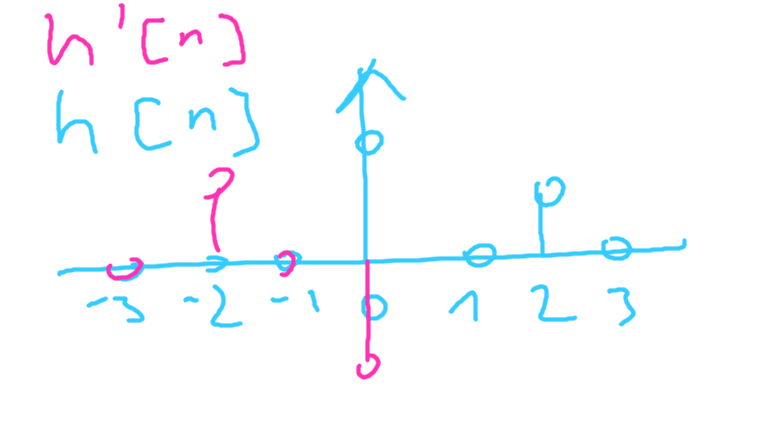 h'[n]
h[n]
-3 -2 -1 0 1 2 3